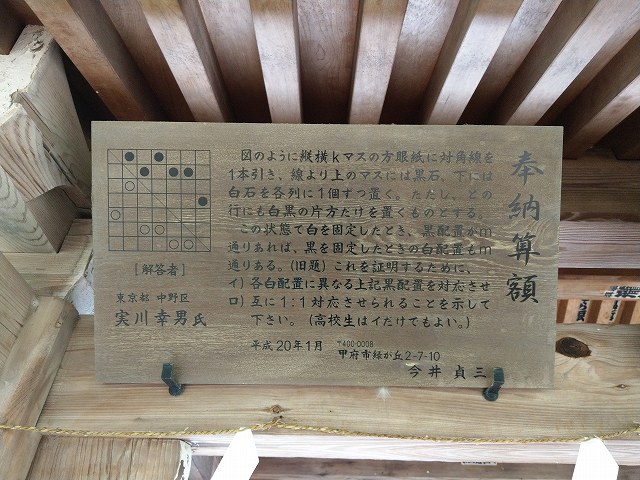 奉納算額
図のように縦横kマスの方眼紙に対角線を
1本引き、線より上のマスには黒石、下には
白石を各列に1個ずつ置く。ただし、どの
行にも白黒の片方だけを置くものとする。
この状態で白を固定したとき、黒配置がm
通りあれば、黒を固定したときの白配置もm
通りある。(旧題)これを証明するために、
イ)各白配置に異なる上記黒配置を対応させ
ロ)互に1:1対応させられることを示して
下さい。(高校生はイだけでもよい。)
平成20年1月 〒400-0008
甲府市緑が丘2-7-10
今井貞三
[解答者]
東京都 中野区
実川幸男氏